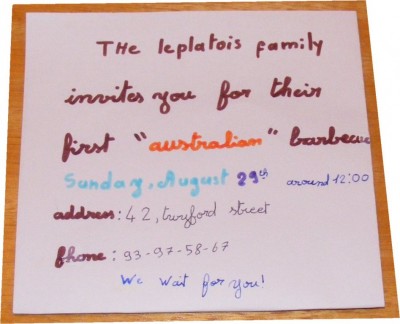 The leplatois family
invites you for their
first "australian" barbecue
Sunday, August 29th around 12:00
address: 42, twyford street
phone: 93-97-58-67
We wait for you!